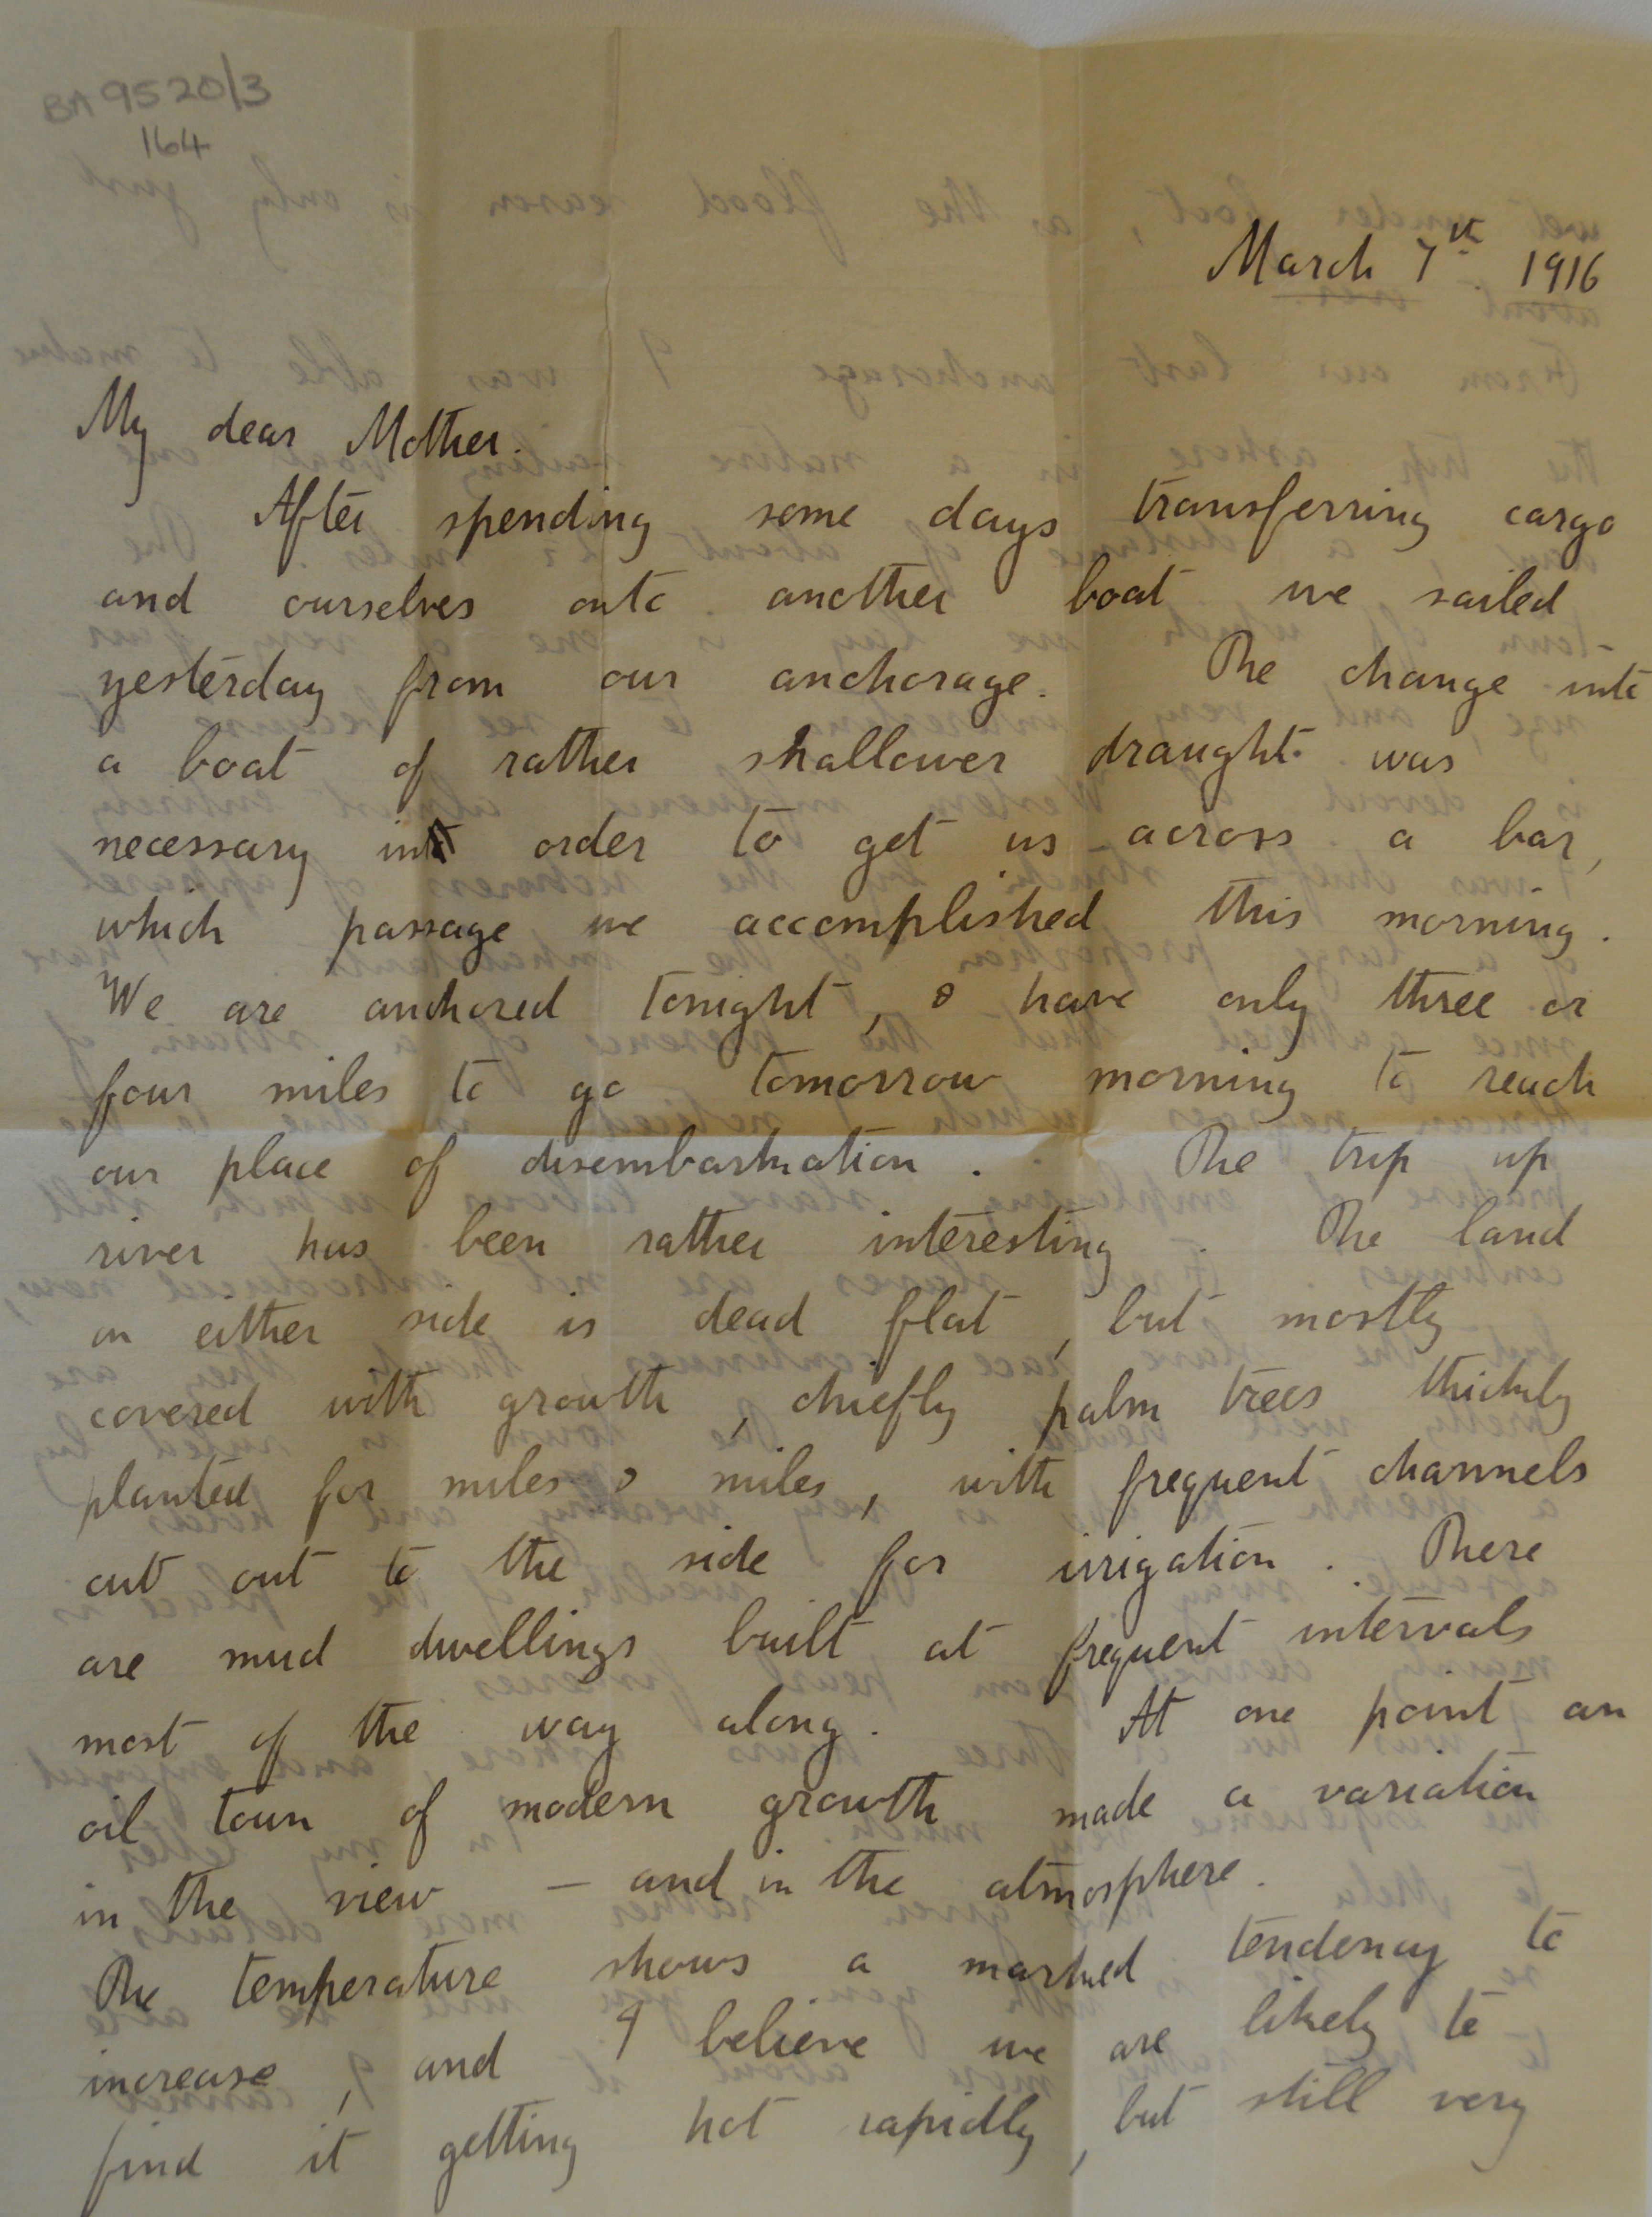 BA 9520/3
164
March 7th. 1916
My dear Mother.
After spending some days transferring cargo
and ourselves onto another boat we sailed
yesterday from our anchorage. The change into
a boat of rather shallower draught was
necessary in order to get us across a bar,
which passage we accomplished this morning.
We are anchored tonight, & have only three or
four miles to go tomorrow morning to reach
our place of disembarkation. The trip up
river has been rather interesting. The land
on either side is dead flat, but mostly
covered with growth, chiefly palm trees thickly
planted for miles & miles, with frequent channels
cut out to the side for irrigation. There
are mud dwellings built at frequent intervals
most of the way along. At one point an
oil town of modern growth made a variation
in the view — and in the atmosphere.
The temperature shows a marked tendency to
increase, and I believe we are likely to
find it getting hot rapidly, but still very